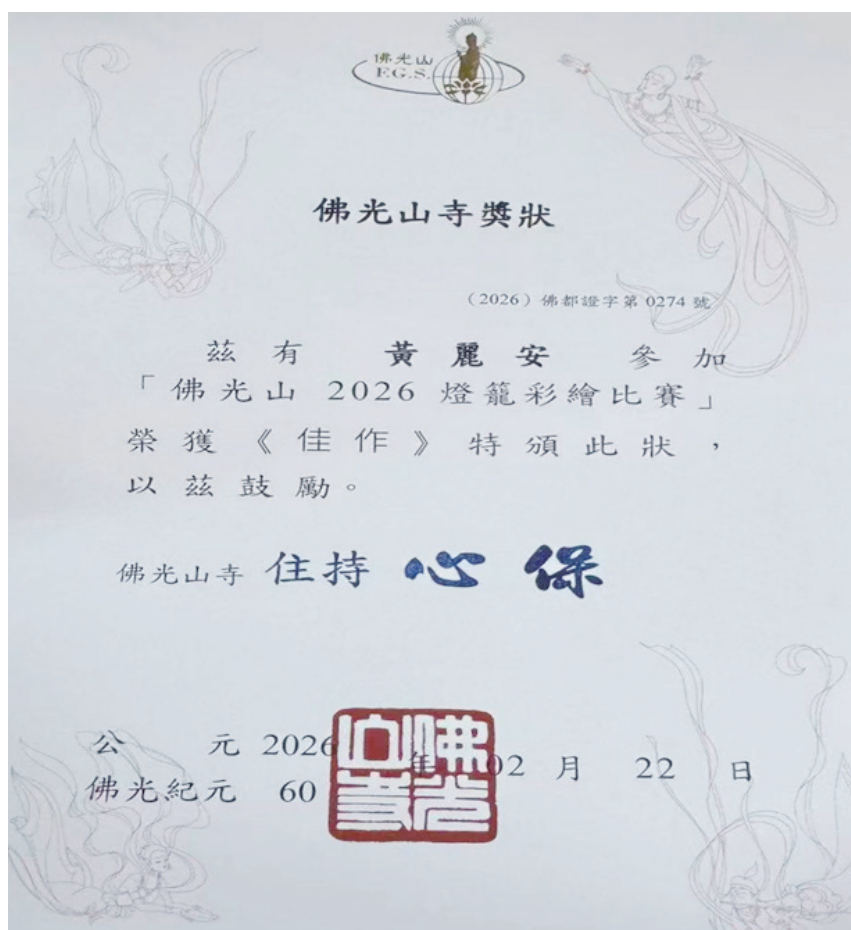 佛光山
F.G.S.
佛光山寺獎狀
（2026）佛都證字第 0274 號
茲有 黃麗安 參加
「佛光山 2026 燈籠彩繪比賽」
榮獲《佳作》特頒此狀，
以茲鼓勵。
佛光山寺 住持 心保
公元 2026 年 02 月 22 日
佛光紀元 60
佛光山寺